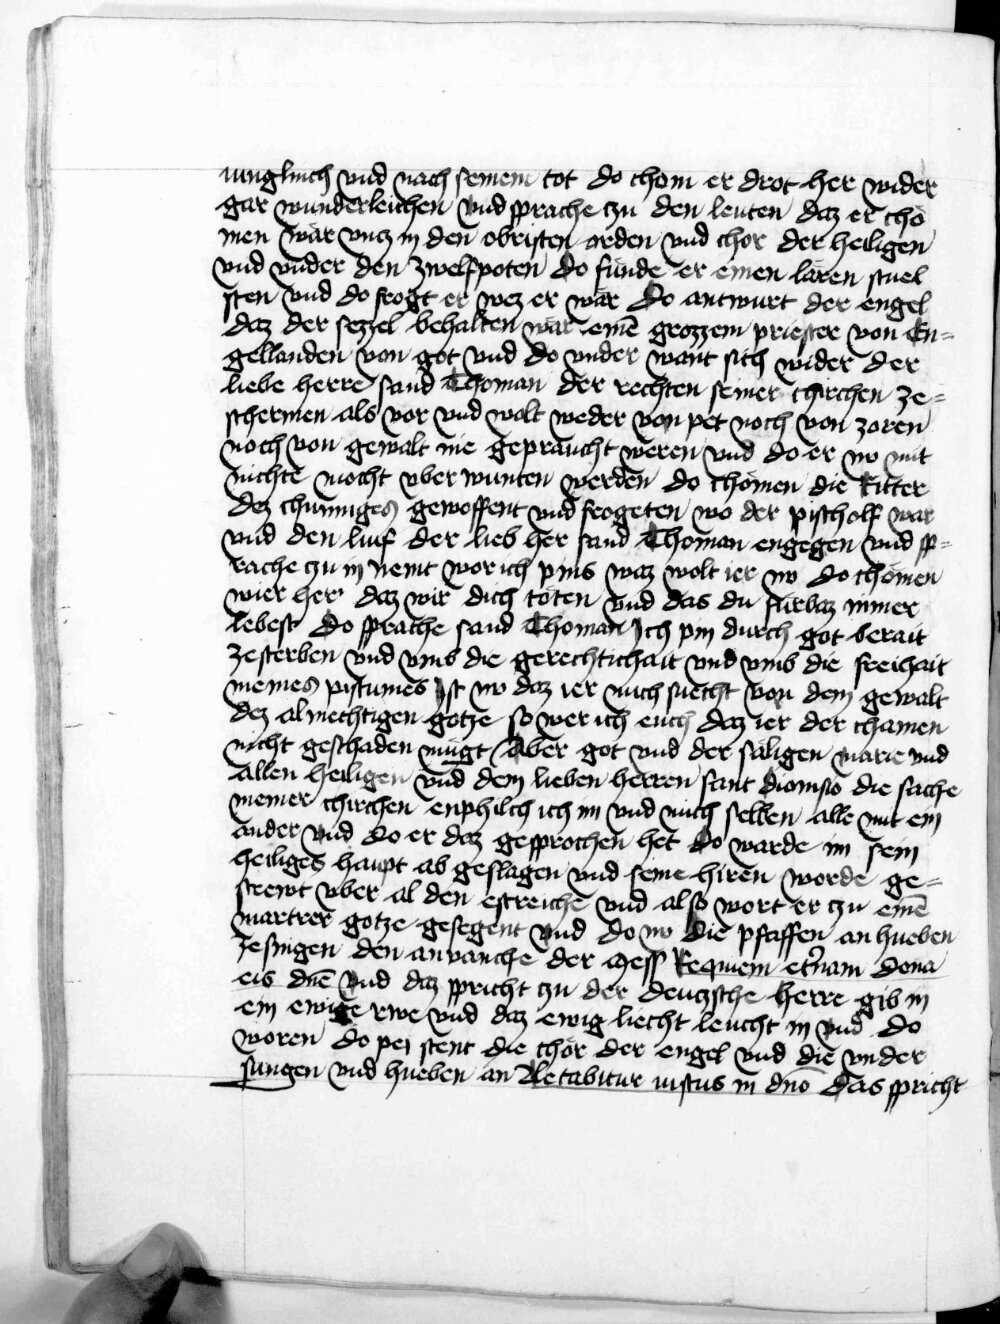 iunglinch vnd nach seinem tot do chom er drot her wider
gar wunderleichen vnd sprache czu den leuten daz er chö
men wär vncz in den obristen orden vnd chor der heiligen
vnd vnder den zwelfpoten do funde er einen lären stuel
sten vnd do frogt er wez er wär Do antwurt der engel
daz der sezzel behalten wär einē grozzem priester von En=
gellanden von got vnd do vnder want sich wider der
liebe herre sand Thoman der rechten seiner chirchen ze=
schermen als vor vnd wolt weder von pet noch von zoren
noch von gewalt nie gepraucht weren vnd do er no mit
nichte mocht vber wunten werden do chömen die Ritter
dez chunniges gewoffent vnd frogeten wo der pischolf war
vnd den luif der lieb her sand Thoman engegen vnd sp=
rache czu in Nemt wor ich pins waz wolt ier no do chömen
wier her daz wir dich töten vnd das du fürbaz nimer
lebest Do sprache sand Thoman Ich pin durch got berait
zesterben vnd vmb die gerechtichait vnd vmb die freihait
meines pistumes Ist no daz ier mich suecht von dem gewalt
dez almechtigen gotze so wer ich euch daz ier der chainen
nicht geschaden mügt Aber got vnd der säligen marie vnd
allen heiligen vnd dem lieben herren sant dionisio die sache
meiner chirchen enphilch ich im vnd mich selben alle mit ein
ander vnd do er daz gesprochen het Do warde im sein
heiliges haupt ab geslagen vnd seine hiren worde ge=
strewt vber al den estreiche vnd also wort er czu einē
martrer gotze gesegent vnd do no die pfaffen an hueben
zesingen den anvanche der Mess Requiem eternam dona
eis dne vnd daz spricht czu der deuczsche herre gib in
ein ewige rwe vnd daz ewig liecht leucht in vnd do
woren do pei stent die chör der engel vnd die vnder
sungen vnd hueben an Letabitur iustus in dno das spricht